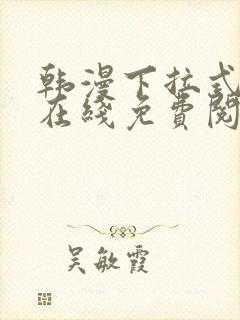 韩漫下拉式
在线免费阅
吴敏霞